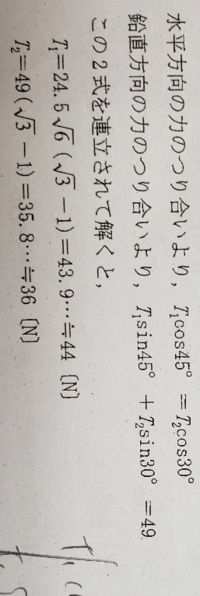 水平方向の力のつり合いより，T₁cos45° =T₂cos30°
鉛直方向の力のつり合いより，T₁sin45° +T₂sin30° =49
この2式を連立されて解くと，
T₁=24.5√6 (√3 −1)=43.9…≒44 〔N〕
T₂=49(√3 −1)=35.8…≒36 〔N〕